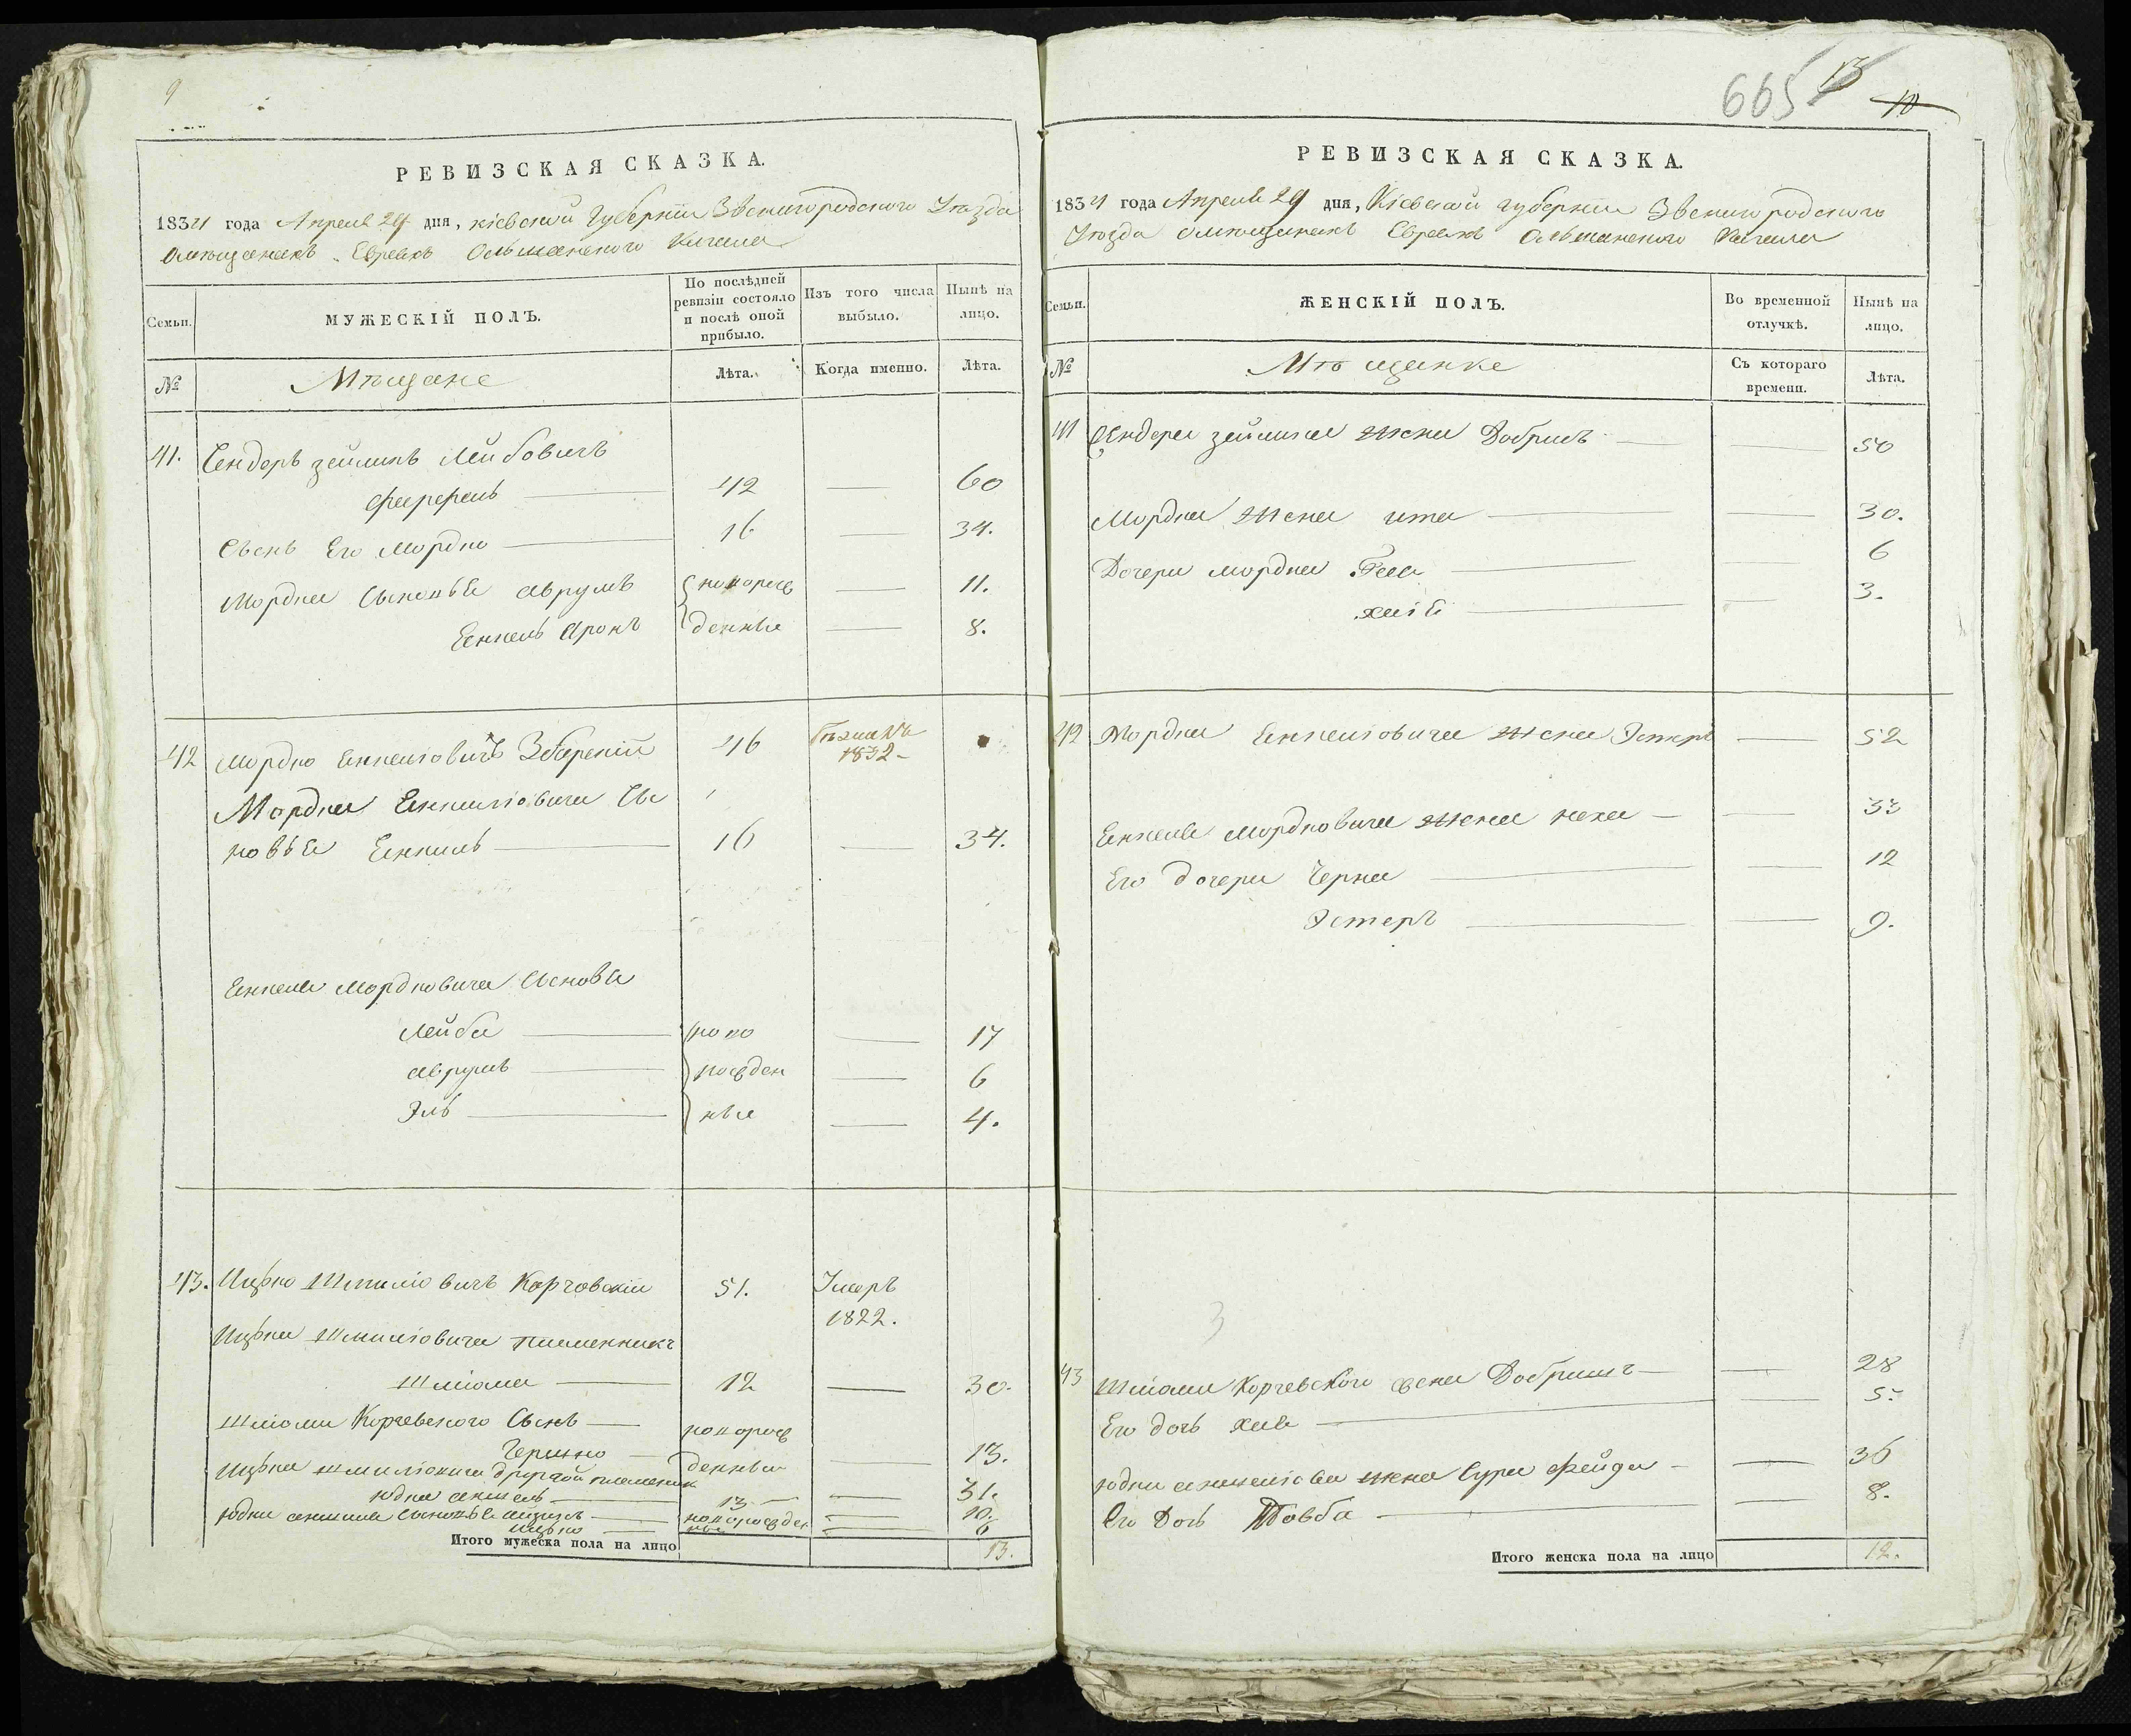 9
РЕВИЗСКАЯ СКАЗКА.
1834 года Апреля 29 дня, Кіевской Губерніи Звенигородского Уезда
Омѣщанахъ Евреяхъ Ольшанского Кагала
Семьи.
МУЖЕСКІЙ ПОЛЪ.
По послѣдней ревизіи состояло и послѣ оной прибыло.
Изъ того числа выбыло.
Нынѣ на лицо.
№
Мѣщане
Лѣта.
Когда именно.
Лѣта.
41. Сендеръ зейликъ Лейбовичъ
42 — 60
Сынъ Его Мордко — 16 — 34.
Мордка Сыновья Аврумъ новорож — 11.
Еннель Аронъ денные — 8.
42 Мордко Еннеліовичъ Збарскій 46 бежалъ
1832
Мордка Еннеліовича Сы
новья Еннель — 16 — 34.
Еннеля Мордковича Сыновя
Лейба — ново — 17
Аврумъ — рожден — 6
Эль — ные — 4.
43. Ицко Шмиліовичъ Корчовскій 51. Умеръ
1822.
Ицка Шмиліовича племенникъ
Шліома — 12 — 30.
Шліоми Корчевского Сынъ — новорож
— денны — 13.
Ицка Шмиліовича другой племеник
Юдка — 13 — 31.
Юдки Сыновья — новорожден — 10.
Ицко — ные — 6
Итого мужеска пола на лицо 13.
665 13 10
РЕВИЗСКАЯ СКАЗКА.
1834 года Апреля 29 дня, Кіевской Губерніи Звенигородского
Уезда Омѣщанахъ Евреяхъ Ольшанского Кагала
Семьи.
ЖЕНСКІЙ ПОЛЪ.
Во временной отлучкѣ.
Нынѣ на лицо.
№
Мѣщанке
Съ котораго времени.
Лѣта.
41 Сендера зейлика жена Добришъ — 50
Мордка жена ита — 30.
Дочери Мордка — 6
хая — 3.
42 Мордка Еннеліовича жена Эстеръ — 52
Еннеля Мордковича жена неха — 33
Его дочери Черна — 12
Эстеръ — 9.
3
43 Шліоми Корчевского жена Добришъ — 28
Его дочь хая — 5.
Юдки жена Сура Фейга — 36
Его Дочь Товба — 8.
Итого женска пола на лицо 12.